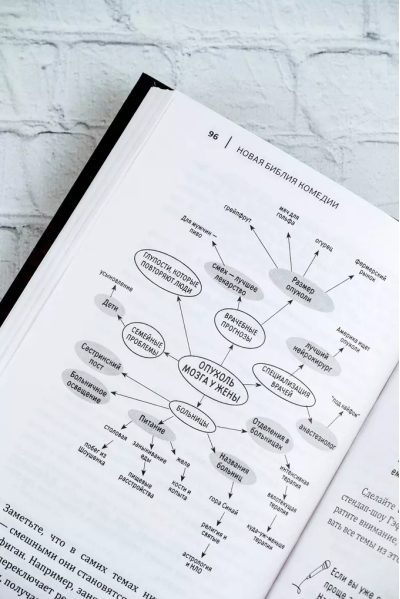 96
НОВАЯ БИБЛИЯ КОМЕДИИ
Для мужчин —
пиво
грейпфрут
мяч для
гольфа
огурец
фермерский
рынок
ГЛУПОСТИ, КОТОРЫЕ
ПОВТОРЯЮТ ЛЮДИ
смех — лучшее
лекарство
Размер
опухоли
усыновление
Дети
СЕМЕЙНЫЕ
ПРОБЛЕМЫ
ВРАЧЕБНЫЕ
ПРОГНОЗЫ
Америка ищет
опухоли
лучший
нейрохирург
ОПУХОЛЬ
МОЗГА У ЖЕНЫ
СПЕЦИАЛИЗАЦИЯ
ВРАЧЕЙ
"под кайфом"
анастезиолог
Сестринский
пост
Больничное
освещение
БОЛЬНИЦЫ
Питание
Отделения в
больницах
Названия
больниц
столовая
заканчивание
еды
желе
побег из
Шоушенка
пищевые
расстройства
кости и
копыта
гора Синай
религия и
святые
астрология
и НЛО
интенсивная
терапия
вялотекущая
терапия
куда-уж-меньше
терапия
Заметьте, что в самих темах ни
— смешными они становятся
фиган. Например, зане
переключает ре
, получа
Сделайте
стендап-шоу Гэф
ратите внимание,
вать все темы из эт
Если вы уже с
проще